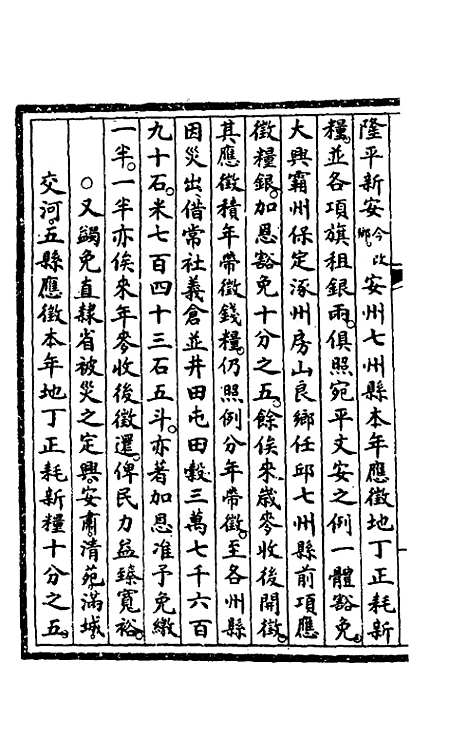 隆平新安今改鄉安州七州縣本年應徵地丁正耗新
糧。並各項旗租銀兩。俱照宛平文安之例一體豁免。
大興霸州保定涿州房山良鄉任邱七州縣前項應
徵糧銀。加恩豁免十分之五。餘俟來歲麥收後開徵。
其應徵積年帶徵錢糧。仍照例分年帶徵。至各州縣
因災出借常社義倉並井田屯田穀三萬七千六百
九十石。米七百四十三石五斗。亦著加恩准予免繳
一半。一半亦俟來年麥收後徵還。俾民力益臻寬裕。
○又蠲免直隸省被災之定興。安肅。清苑。滿城
交河。五縣應徵本年地丁正耗新糧十分之五。